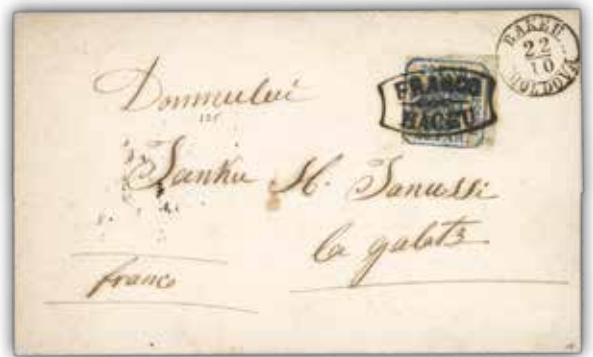 BAKEU
22
10
MOLDOVA
FRANCO
BACEU
Domnului
125
Ianku M. Ianussi
la galatz
franco